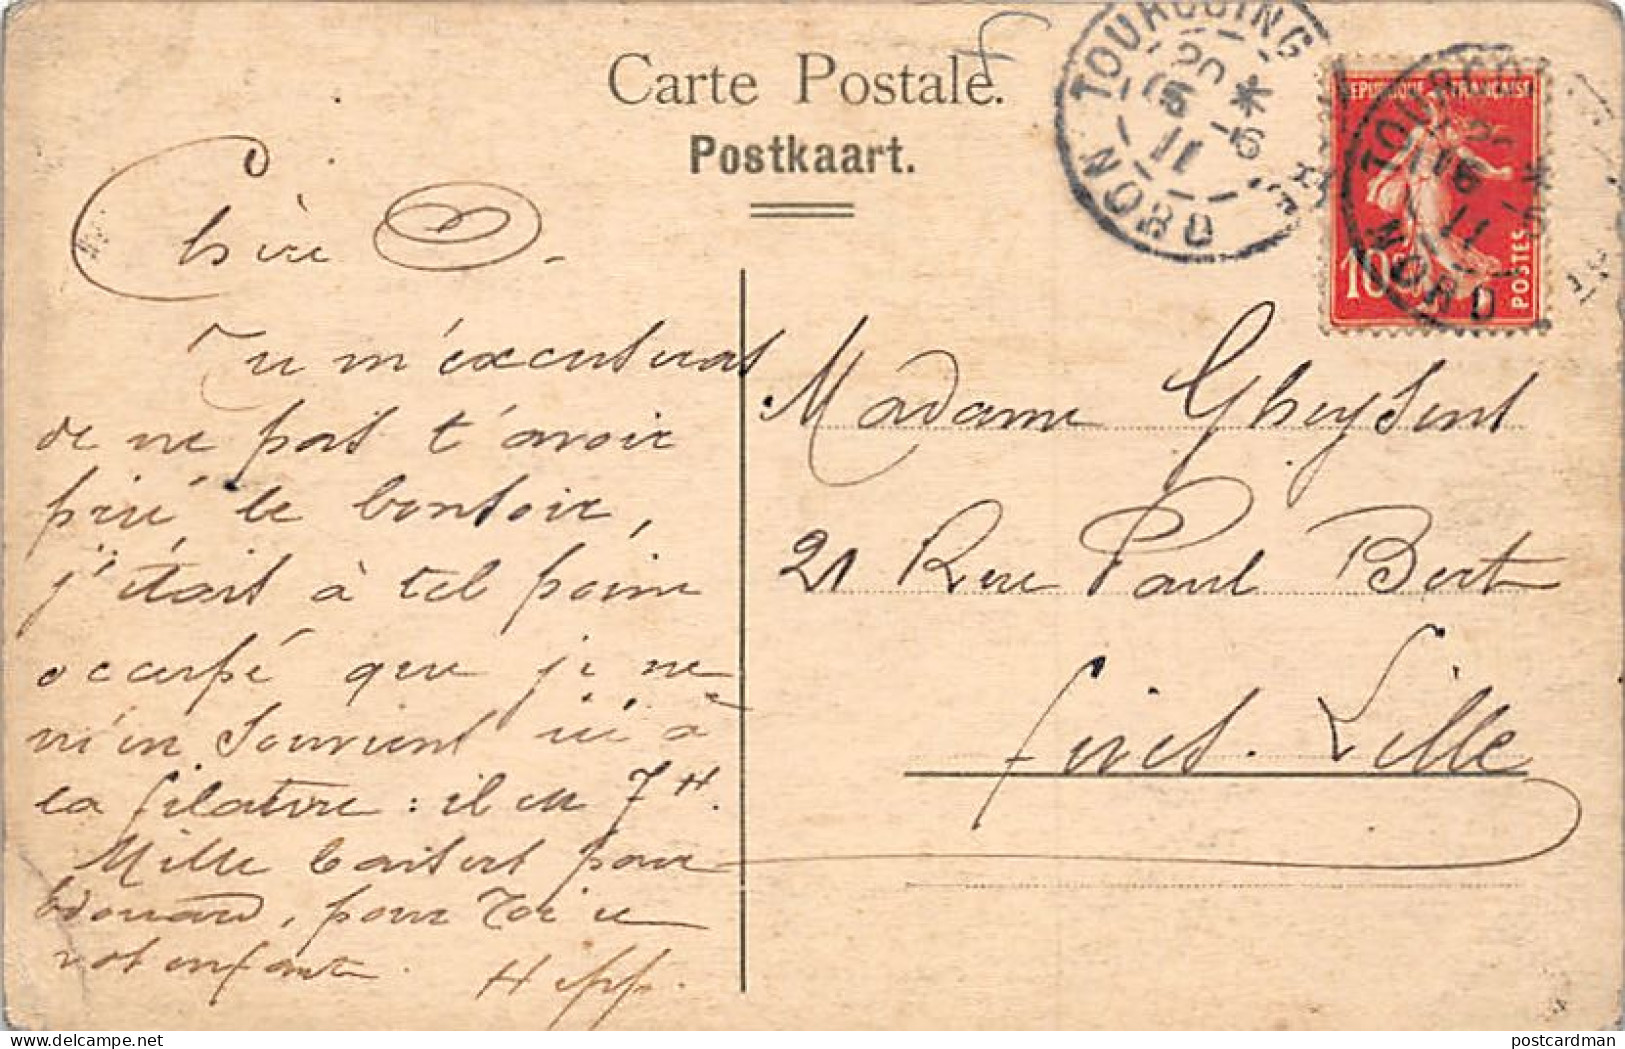 Carte Postale.
Postkaart.
TOURCOING
20 *
15 -6
11
NORD
REPUBLIQUE FRANÇAISE
10c
POSTES
TOURCOING
NORD
Chère
Tu m'excuseras
de ne pas t'avoir
prié le bonsoir,
j'étais à tel point
occupé que je ne
m'en souviens ici à
la filature: il est 7 H.
Mille baisers pour
Edouard, pour Toi et
vos enfants.
Madame Gheysens
21 Rue Paul Bert
fives. Lille
delcampe.net
postcardman